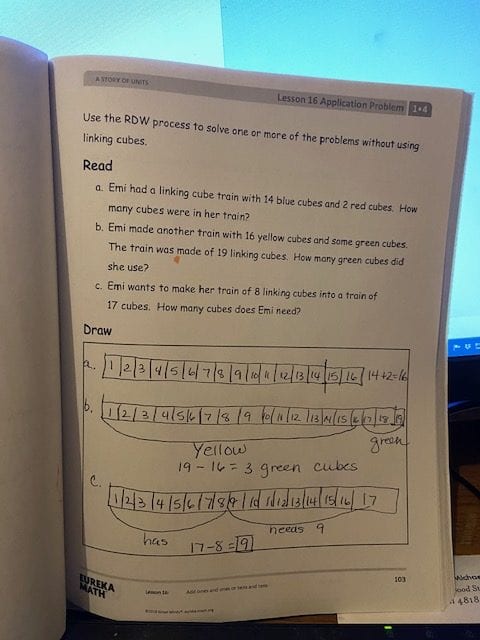 A STORY OF UNITS
Lesson 16 Application Problem 1•4
Use the RDW process to solve one or more of the problems without using
linking cubes.
Read
a. Emi had a linking cube train with 14 blue cubes and 2 red cubes. How
many cubes were in her train?
b. Emi made another train with 16 yellow cubes and some green cubes.
The train was made of 19 linking cubes. How many green cubes did
she use?
c. Emi wants to make her train of 8 linking cubes into a train of
17 cubes. How many cubes does Emi need?
Draw
a. 1 2 3 4 5 6 7 8 9 10 11 12 13 14 15 16 14+2=16
b. 1 2 3 4 5 6 7 8 9 10 11 12 13 14 15 16 17 18 19
Yellow green
19 - 16 = 3 green cubes
c.
1 2 3 4 5 6 7 8 9 10 11 12 13 14 15 16 17
has needs 9
17-8=9
EUREKA
MATH
Lesson 16: Add ones and ones or tens and tens. 103
4818